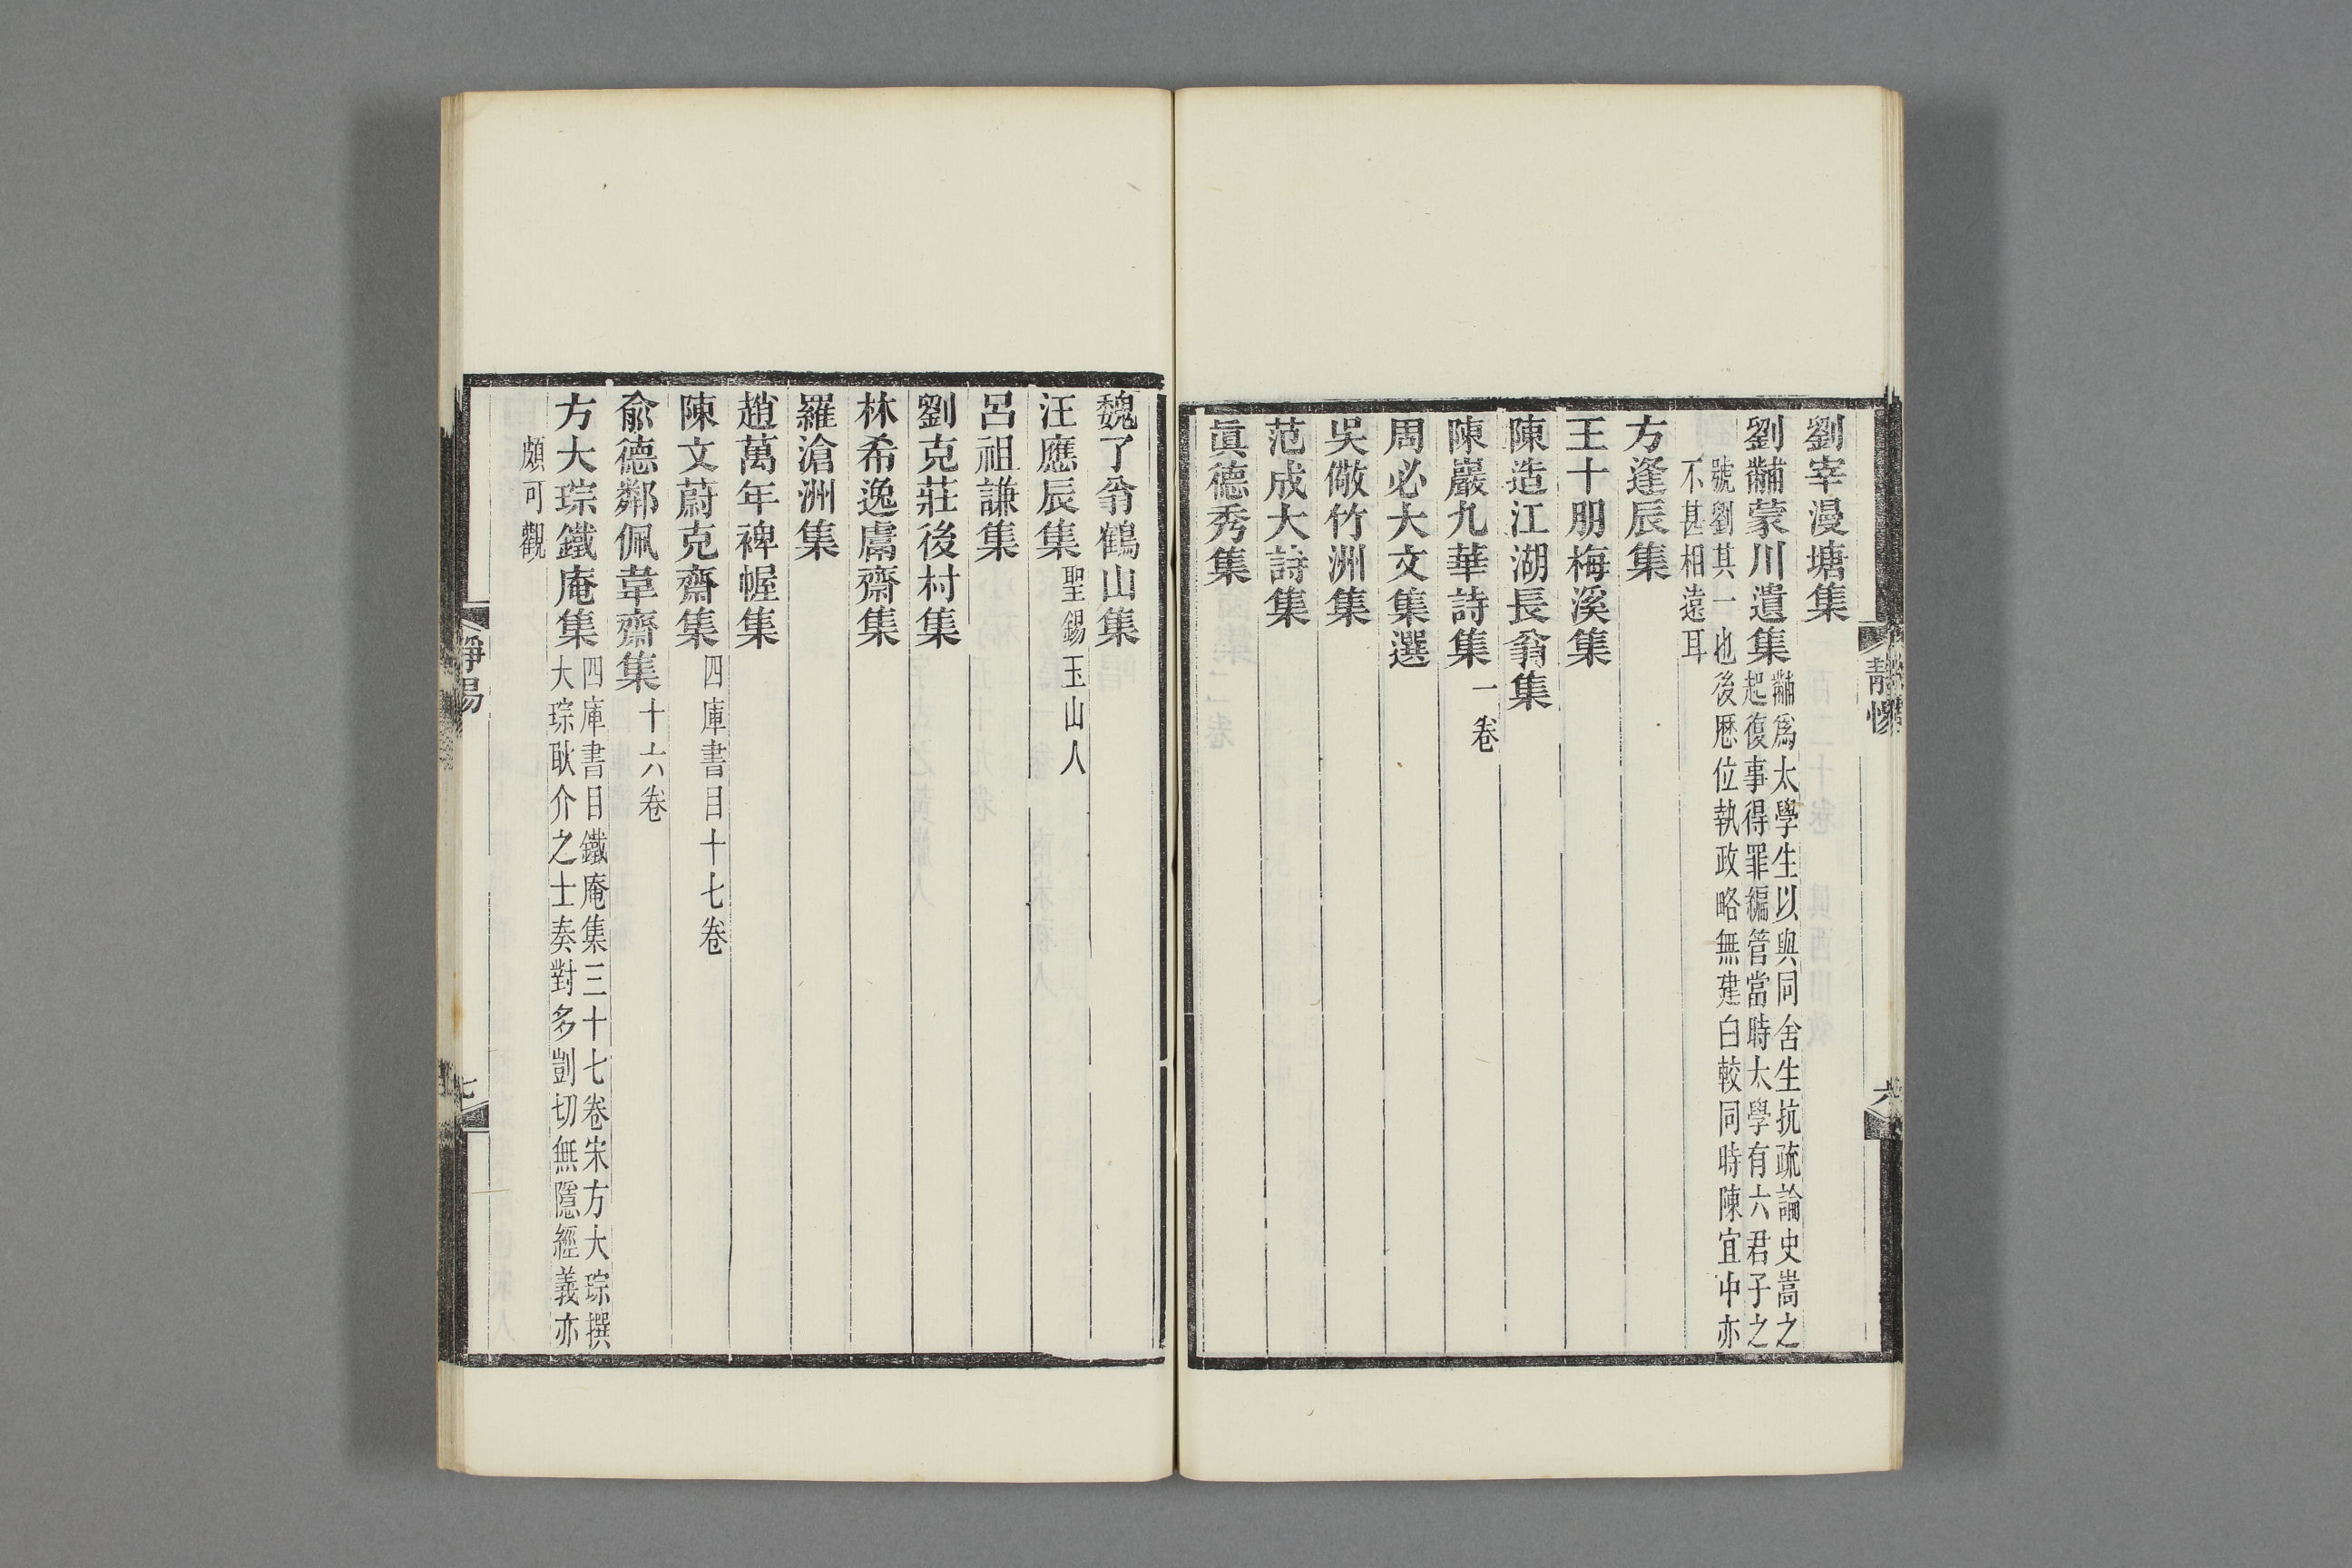 劉宰漫塘集
劉黼蒙川遺集 黼爲太學生以與同舍生抗疏論史嵩之
起復事得罪編管當時太學有六君子之
號劉其一也後歷位執政略無建白較同時陳宜中亦
不甚相遠耳
方逢辰集
王十朋梅溪集
陳造江湖長翁集
陳巖九華詩集 一卷
周必大文集選
吳儆竹洲集
范成大詩集
眞德秀集
六
魏了翁鶴山集
汪應辰集 聖錫玉山人
呂祖謙集
劉克莊後村集
林希逸鬳齋集
羅滄洲集
趙萬年裨幄集
陳文蔚克齋集 四庫書目十七卷
俞德鄰佩韋齋集 十六卷
方大琮鐵庵集 四庫書目鐵庵集三十七卷宋方大琮撰
大琮耿介之士奏對多剴切無隱經義亦
頗可觀
七